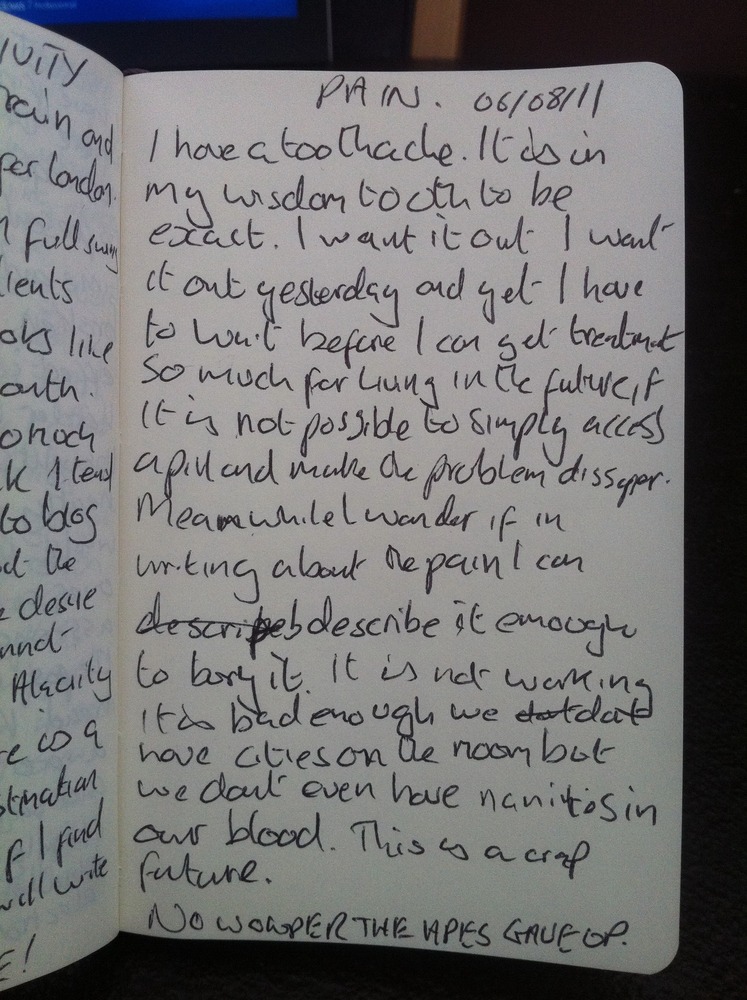 7 Professional
IVITY
and
per london.
full swing
lients
oks like
outh.
k I tend
to blog
the
desire
Alacrity
is a
f I find
will write
E!
PAIN. 06/08/11
I have a toothache. It is in
my wisdom tooth to be
exact. I want it out I want
it out yesterday and yet I have
to wait before I can get treatment
so much for living in the future, if
it is not possible to simply access
a pill and make the problem dissaper.
Meanwhile I wonder if in
writing about the pain I can
describe it enough
to bury it. It is not working
it is bad enough we
have cities on the moon but
we dont even have nanites in
our blood. This is a crap
future.
NO WONDER THE APES GAVE UP.